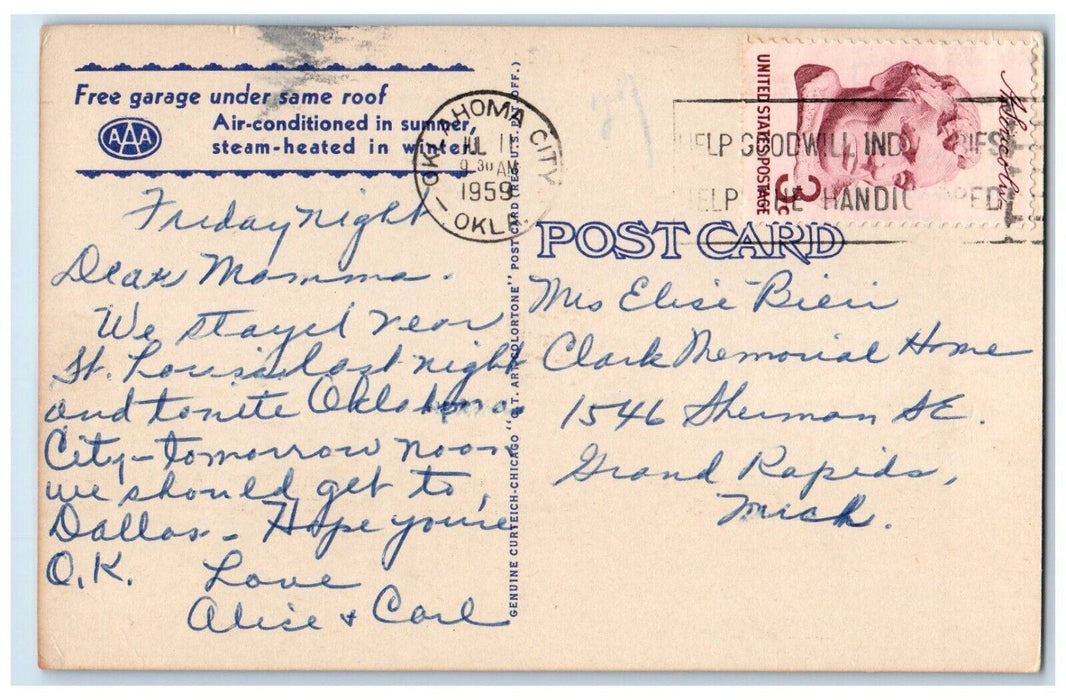 Free garage under same roof
AAA
Air-conditioned in summer,
steam-heated in winter.
OKLAHOMA CITY
JUL 11
9 30 AM
1959
OKLA.
HELP GOODWILL INDUSTRIES
HELP THE HANDICAPPED
UNITED STATES POSTAGE
3c
A. Lincoln
POST CARD
GENUINE CURTEICH-CHICAGO "C.T. ART-COLORTONE" POST CARD (REG. U.S. PAT. OFF.)
Friday night
Dear Momma.
We stayed near
St. Louis last night
and tonite Oklahoma
City - tomorrow noon
we should get to
Dallas - Hope you're
O.K. Love
Alice + Carl
Mrs Elise Bieri
Clark Memorial Home
1546 Sherman SE.
Grand Rapids,
Mich.